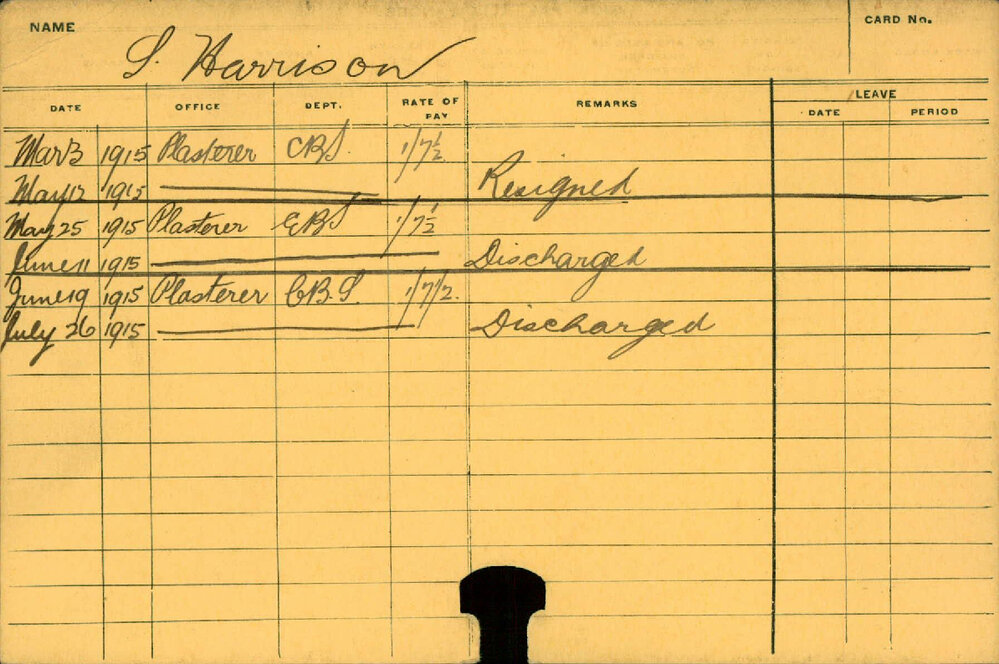 NAME S. Harrison CARD No.
DATE OFFICE DEPT. RATE OF PAY REMARKS LEAVE
DATE PERIOD
Mar 3 1915 Plasterer CBS. 1/7½
May 12 1915 Resigned
May 25 1915 Plasterer EBS 1/7½
June 11 1915 Discharged
June 19 1915 Plasterer C.B.S. 1/7/2.
July 26 1915 Discharged